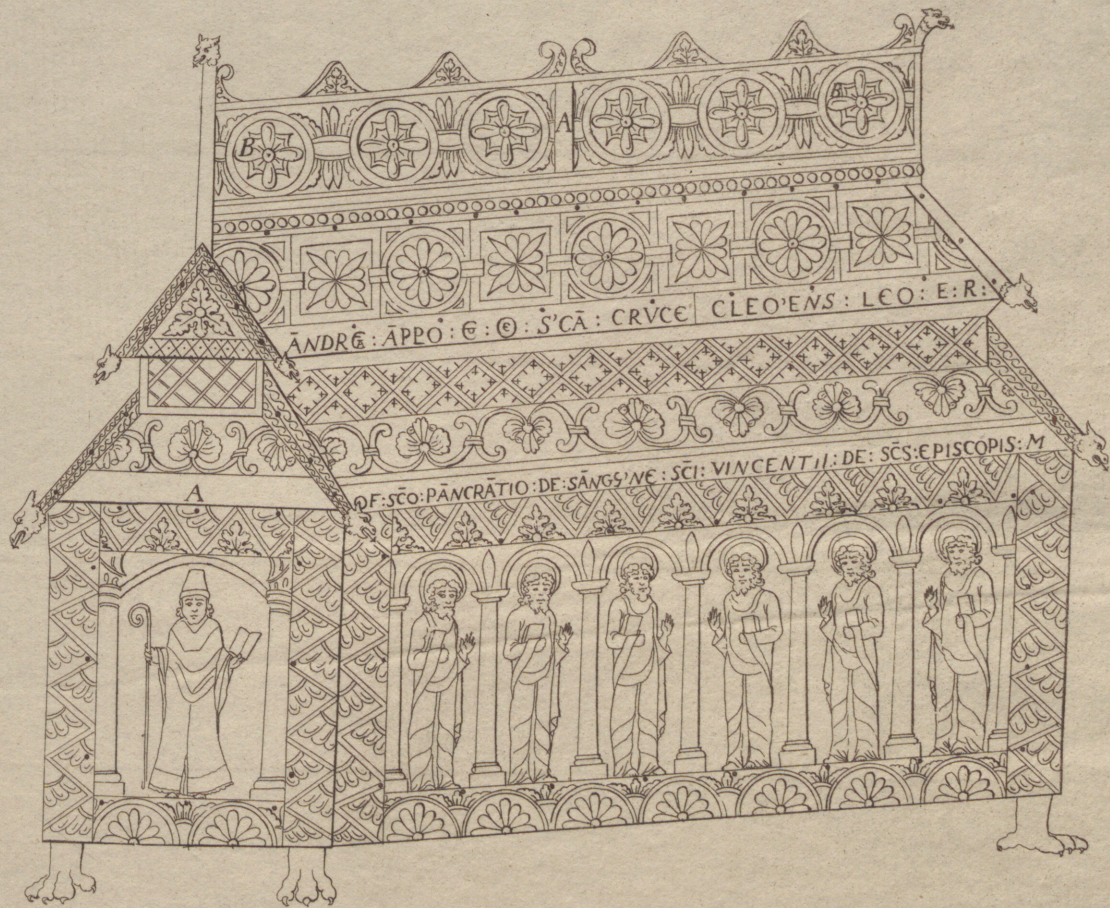 A
B
B
ĀNDRĒ : ĀPPO : E : Θ : S'CĀ : CRVCE CLEO'ENS : LEO : E : R :
F : SC̄O : PĀNCRĀTIO : DE : SĀNGS'NE : SC̄I : VINCENTII : DE : SC̄S : EPISCOPIS : M
A